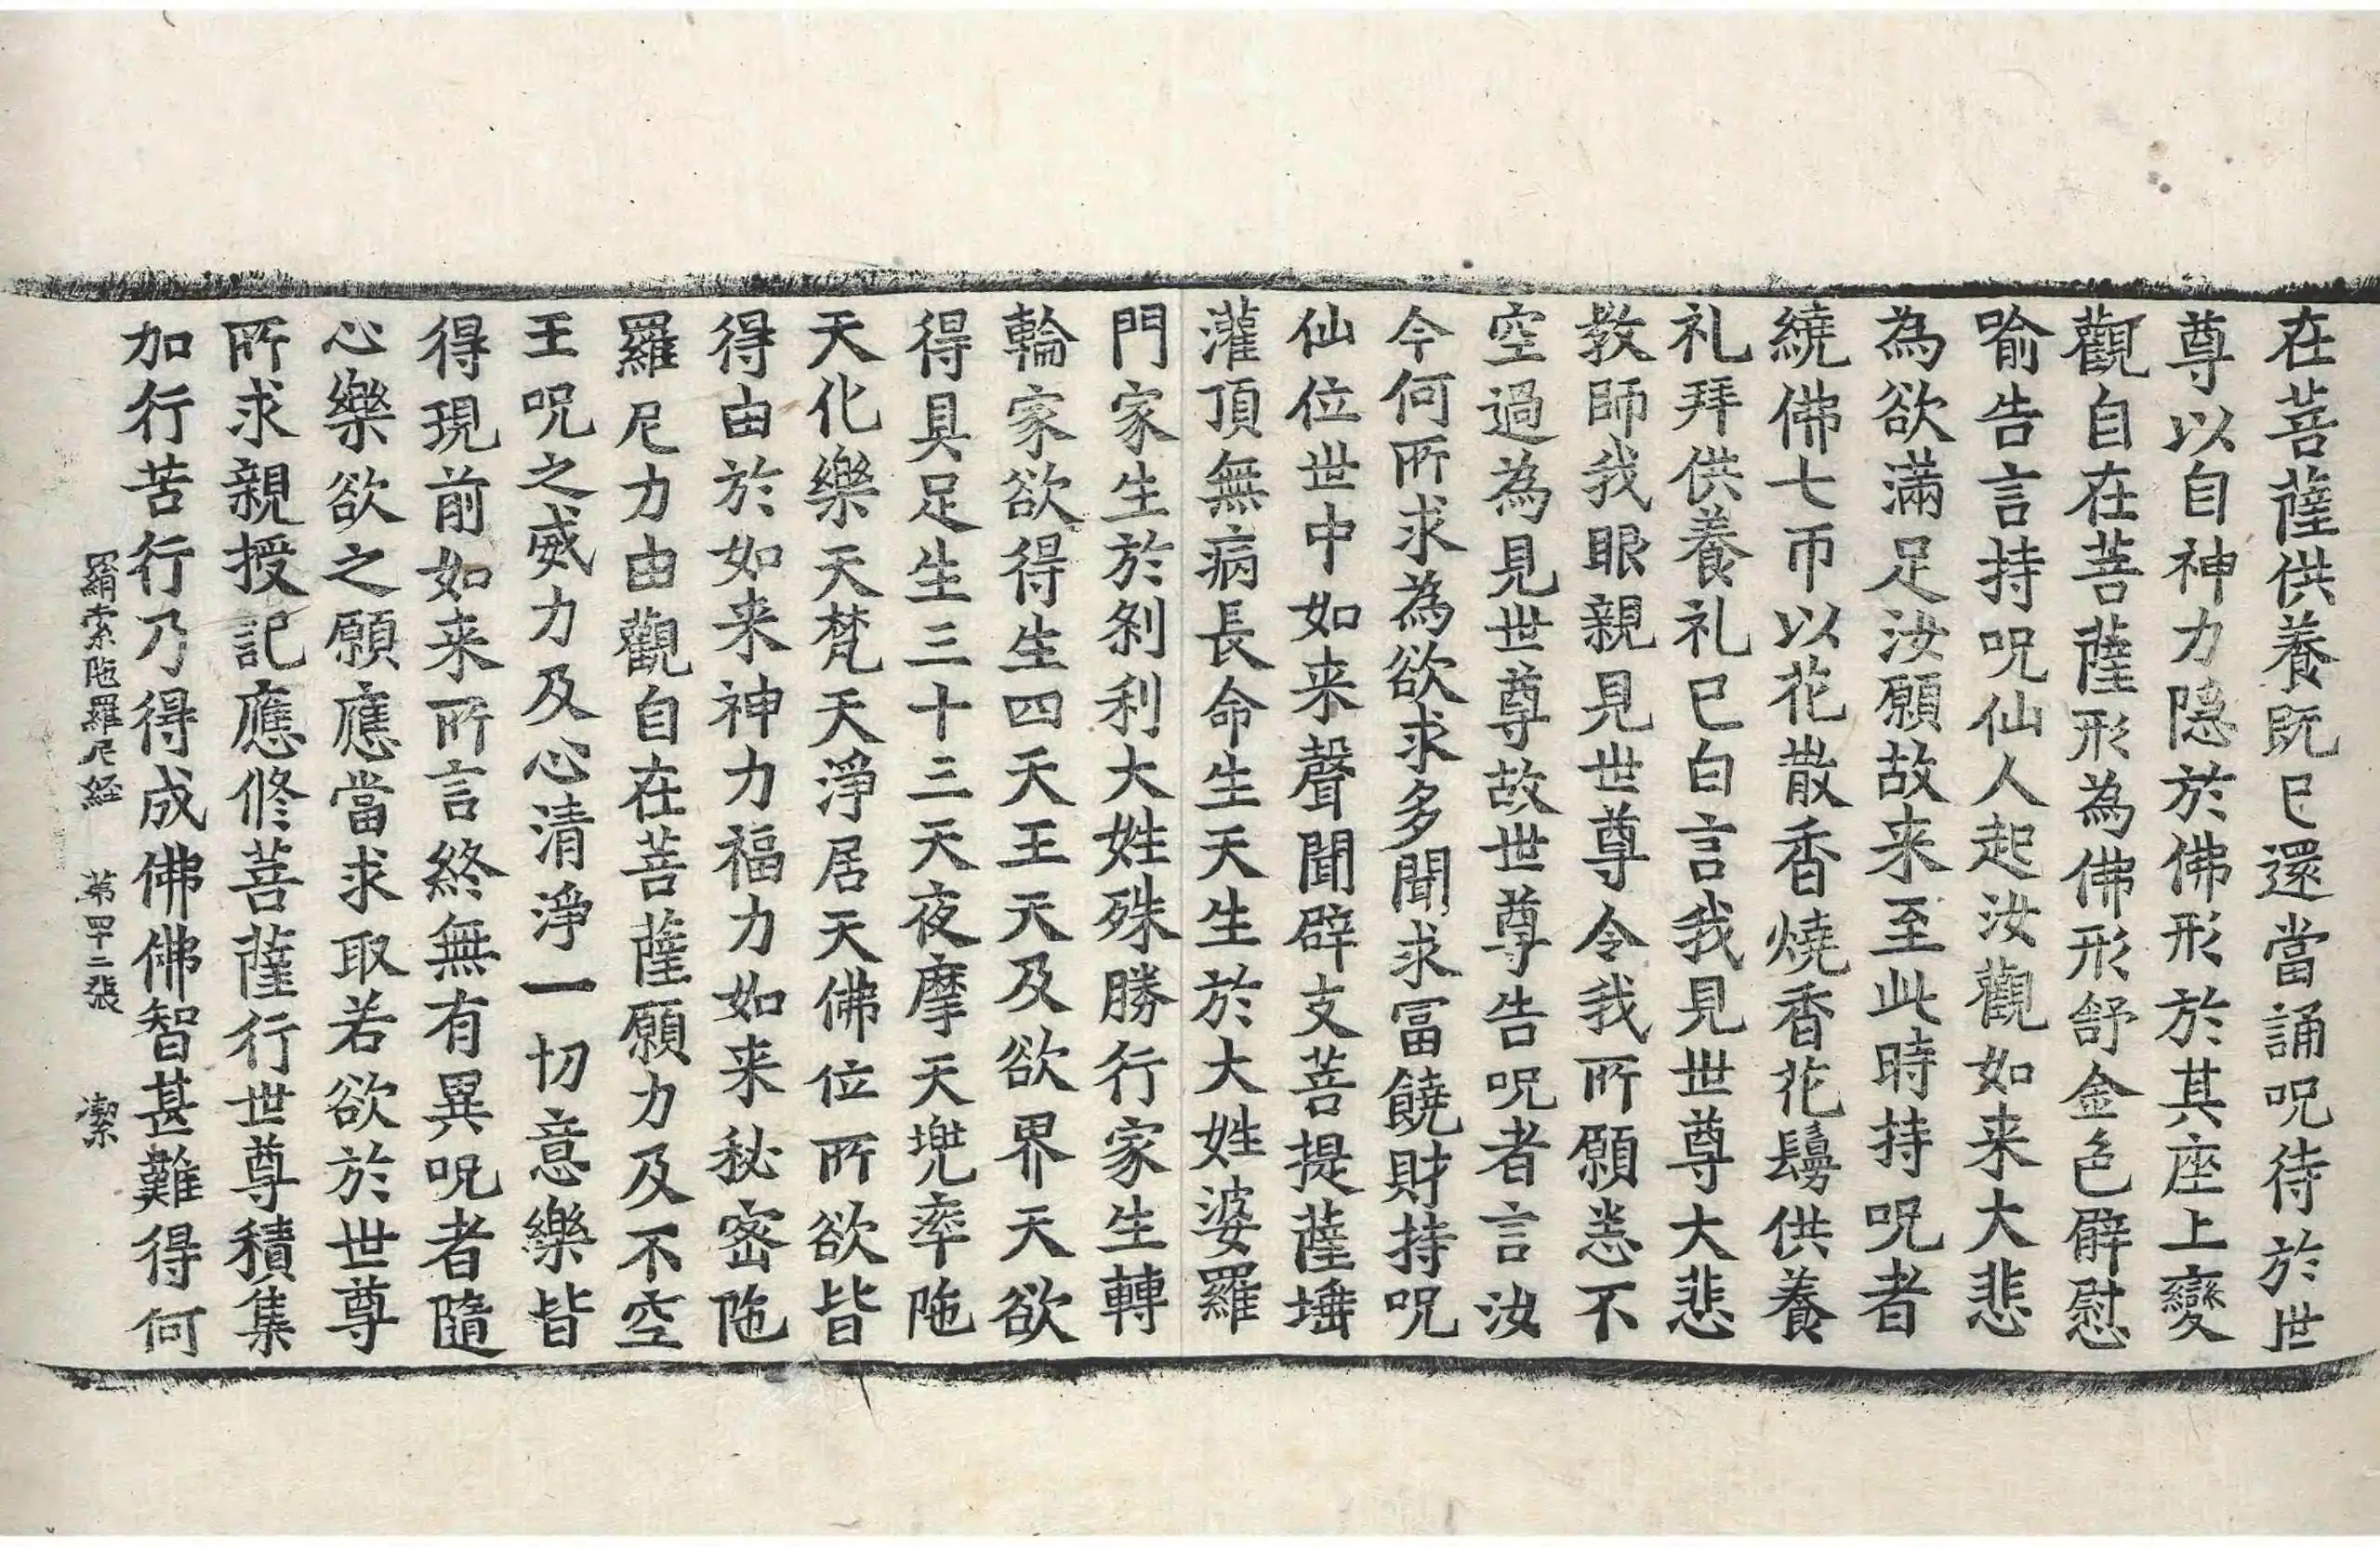 在菩薩供養既已還當誦呪待於世
尊以自神力隱於佛形於其座上變
觀自在菩薩形為佛形舒金色臂慰
喻告言持呪仙人起汝觀如来大悲
為欲滿足汝願故来至此時持呪者
繞佛七帀以花散香燒香花鬘供養
礼拜供養礼已白言我見世尊大悲
教師我眼親見世尊令我所願恙不
空過為見世尊故世尊告呪者言汝
今何所求為欲求多聞求冨饒財持呪
仙位世中如来聲聞辟支菩提薩埵
灌頂無病長命生天生於大姓婆羅
門家生於剎利大姓殊勝行家生轉
輪家欲得生四天王天及欲界天欲
得具足生三十三天夜摩天兠率陁
天化樂天天梵天淨居天佛位所欲皆
得由於如来神力福力如来秘密陁
羅尼力由觀自在菩薩願力及不空
王呪之威力及心清淨一切意樂皆
得現前如来所言終無有異呪者隨
心樂欲之願應當求取若欲於世尊
所求親授記應修菩薩行世尊積集
加行苦行乃得成佛佛智甚難得何
羂索陁羅尼経 第四十二張 潔